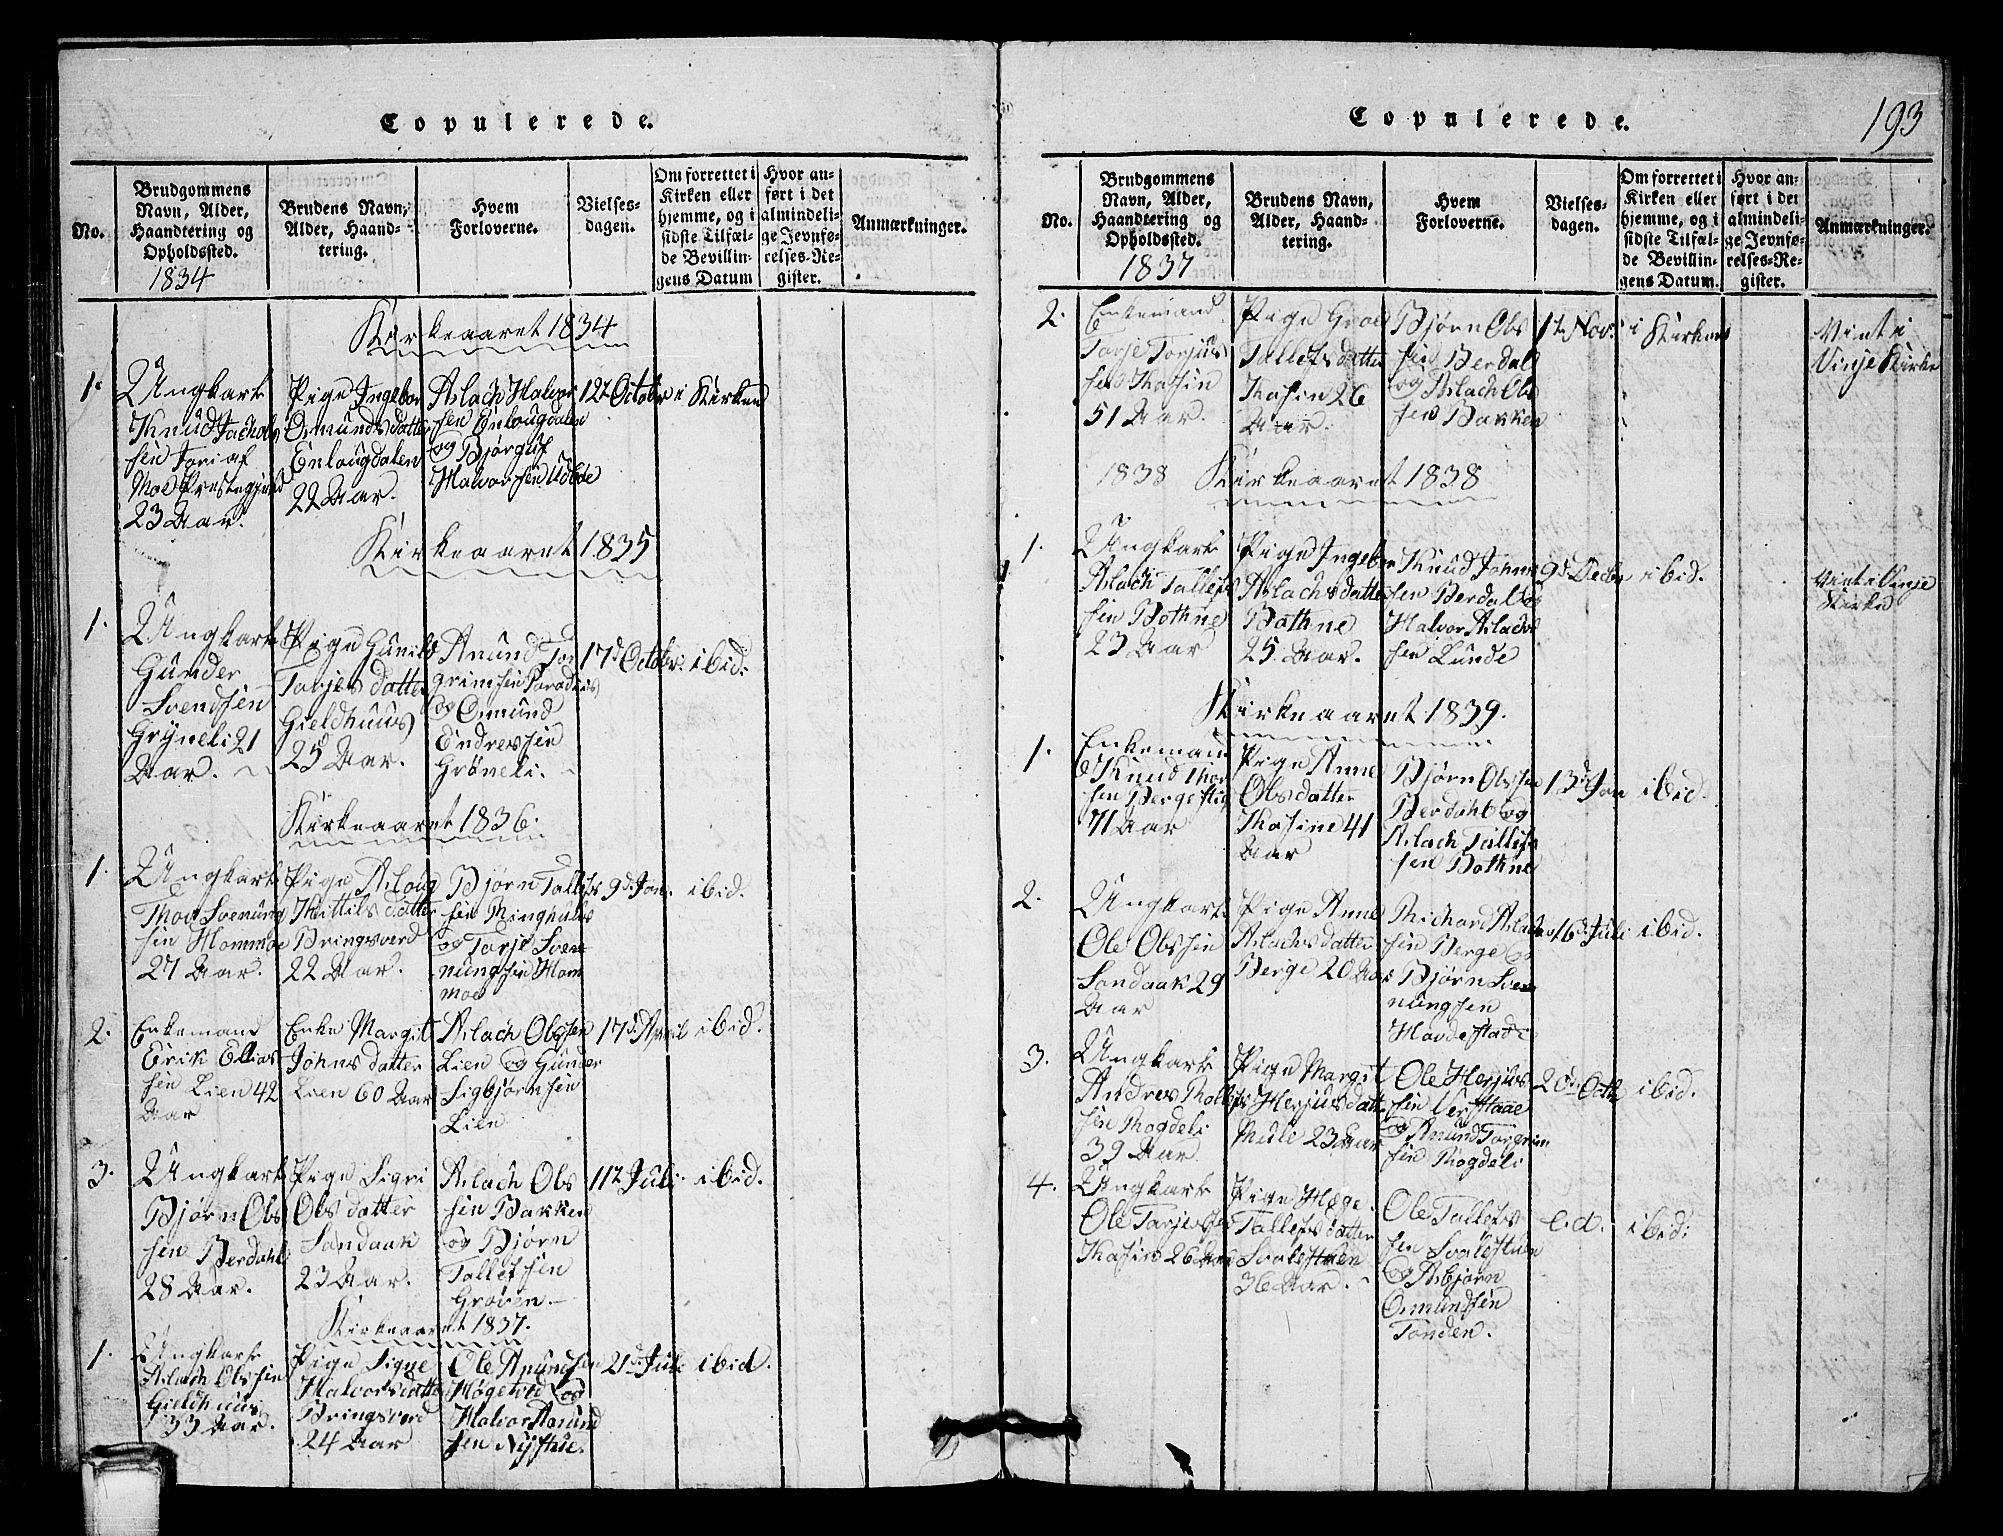 Copulerede.
No.
Brudgommens
Navn, Alder,
Haandtering og
Opholdssted.
1834
Brudens Navn,
Alder, Haand-
tering.
Hvem
Forloverne.
Vielses-
dagen.
Om forrettet i
Kirken eller
hjemme, og i
sidste Tilfæl-
de Bevillin-
gens Datum
Hvor an-
ført i det
almindeli-
ge Jevnfø-
relses-Re-
gister.
Anmærkninger.
Kirkeaaret 1834
1.
Ungkarl
Knud Jachobs
sen Jori af
Moe Prestegjeld
23 Aar.
Pige Ingebor
Osmundsdatter
Enlougdalen
22 Aar.
Aslach Halvor
sen Enlougdalen
og Bjørguf
Halvorsen Udbøe
12te October
i Kirken
Kirkeaaret 1835
1.
Ungkarl
Gunder
Svendsen
Gryneli 21
Aar.
Pige Gunild
Tarjes datter
Gieldhuus
25 Aar.
Anund Tor
grimsen Paradiis
og Osmund
Endresen
Grôneli.
17d Octobr.
ibid:
Kirkeaaret 1836.
1.
Ungkarl
Thor Svenung
sen Hommoe
27 Aar.
Pige Aslaug
Kittils datter
Bringsverd
22 Aar.
Bjørn Tallefs
sen Ringhuus
og Tarje Sven
nungsen Hom
moe
9d Jan.
ibid.
2.
Enkemand
Erik Elias
sen Lien 42
Aar
Enke Margit
Johns datter
Lien 60 Aar
Aslach Olssen
Lien og Gunder
Sigbjørnsen
Lien
17d April
ibid.
3.
Ungkarl
Bjørn Ols
sen Berdahl
28 Aar.
Pige Sigri
Ols datter
Sandaak
23 Aar.
Aslach Ols
sen Bakken
og Bjørn
Tallefsen
Groven.
11te Juli.
ibid.
Kirkeaaret 1837.
1.
Ungkarl
Aslach Olssen
Gieldhuus
33 Aar.
Pige Signe
Halvorsdatter
Bringsverd
24 Aar
Ole Anundsen
Høgetvedt og
Halvor Aanund
sen Nystue.
21d Juli
ibid.
Copulerede.
193
No.
Brudgommens
Navn, Alder,
Haandtering og
Opholdssted.
1837
Brudens Navn,
Alder, Haand-
tering.
Hvem
Forloverne.
Vielses-
dagen.
Om forrettet i
Kirken eller
hjemme, og i
sidste Tilfæl-
de Bevillin-
gens Datum.
Hvor an-
ført i det
almindeli-
ge Jevnfø-
relses-Re-
gister.
Anmærkninger.
2.
Enkemand
Tarje Torjus
sen Kasin
51 Aar.
Pige Groe
Tallefs datter
Kasin 26
Aar.
Bjørn Ols
sen Berdal
og Aslach Ols
sen Bakken
1te Nov.
i Kirken
Viet i
Vinje Kirke
1838
Kirkeaaret 1838
1.
Ungkarl
Aslach Tallefs
sen Bothne
23 Aar
Pige Ingebor
Aslachsdatter
Bothne
25 Aar.
Knud Johns
sen Berdal og
Halvor Aslachs
sen Lunde
9d Decbr
ibid.
Viet i Vinje
Kirke
Kirkeaaret 1839.
1.
Enkemand
Knud Thor
sen Bergestig
71 Aar
Pige Anne
Olsdatter
Kasine 41
Aar
Bjørn Olssen
Berdahl og
Aslach Tallefs
sen Bothne
13d Jan
ibid.
2.
Ungkarl
Ole Olssen
Sandaak 29
Aar
Pige Anne
Aslachsdatter
Berge 20 Aar
Richard Aslach
sen Berge og
Bjørn Sven
nungsen
Hovdestad
16d Juli
ibid.
3.
Ungkarl
Andres Tallefs
sen Rogdeli
39 Aar
Pige Margit
Herjusdatter
Muli 23 Aar
Ole Herjus
sen Verstaae
og Anund Torgrim
sen Rogdeli
20de Octb.
ibid.
4.
Ungkarl
Ole Tarjessen
Kasin 26 Aar
Pige Hæge
Tallefsdatter
Svalestuen
36 Aar.
Ole Tallefs
sen Svalestuen
og Asbjørn
Osmundsen
Tonden.
e.d.
ibid: